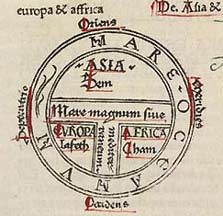 europa & affrica
De. Asia &
Oriens
MARE OCEANVM
Septentrio
Meridies
ASIA
Sem
Mare magnum siue
mediterraneum
EVROPA
Iafeth
AFRICA
Cham
Occidens